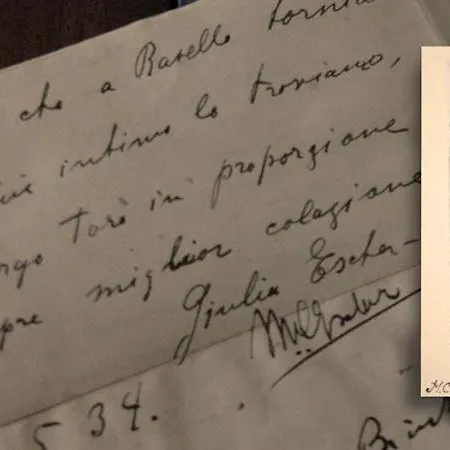 che a Ravello torniamo
intimo lo troviamo,
Torò in proporzione
miglior colazione
Giulia Escher-
MCEscher
5 34.
M.C